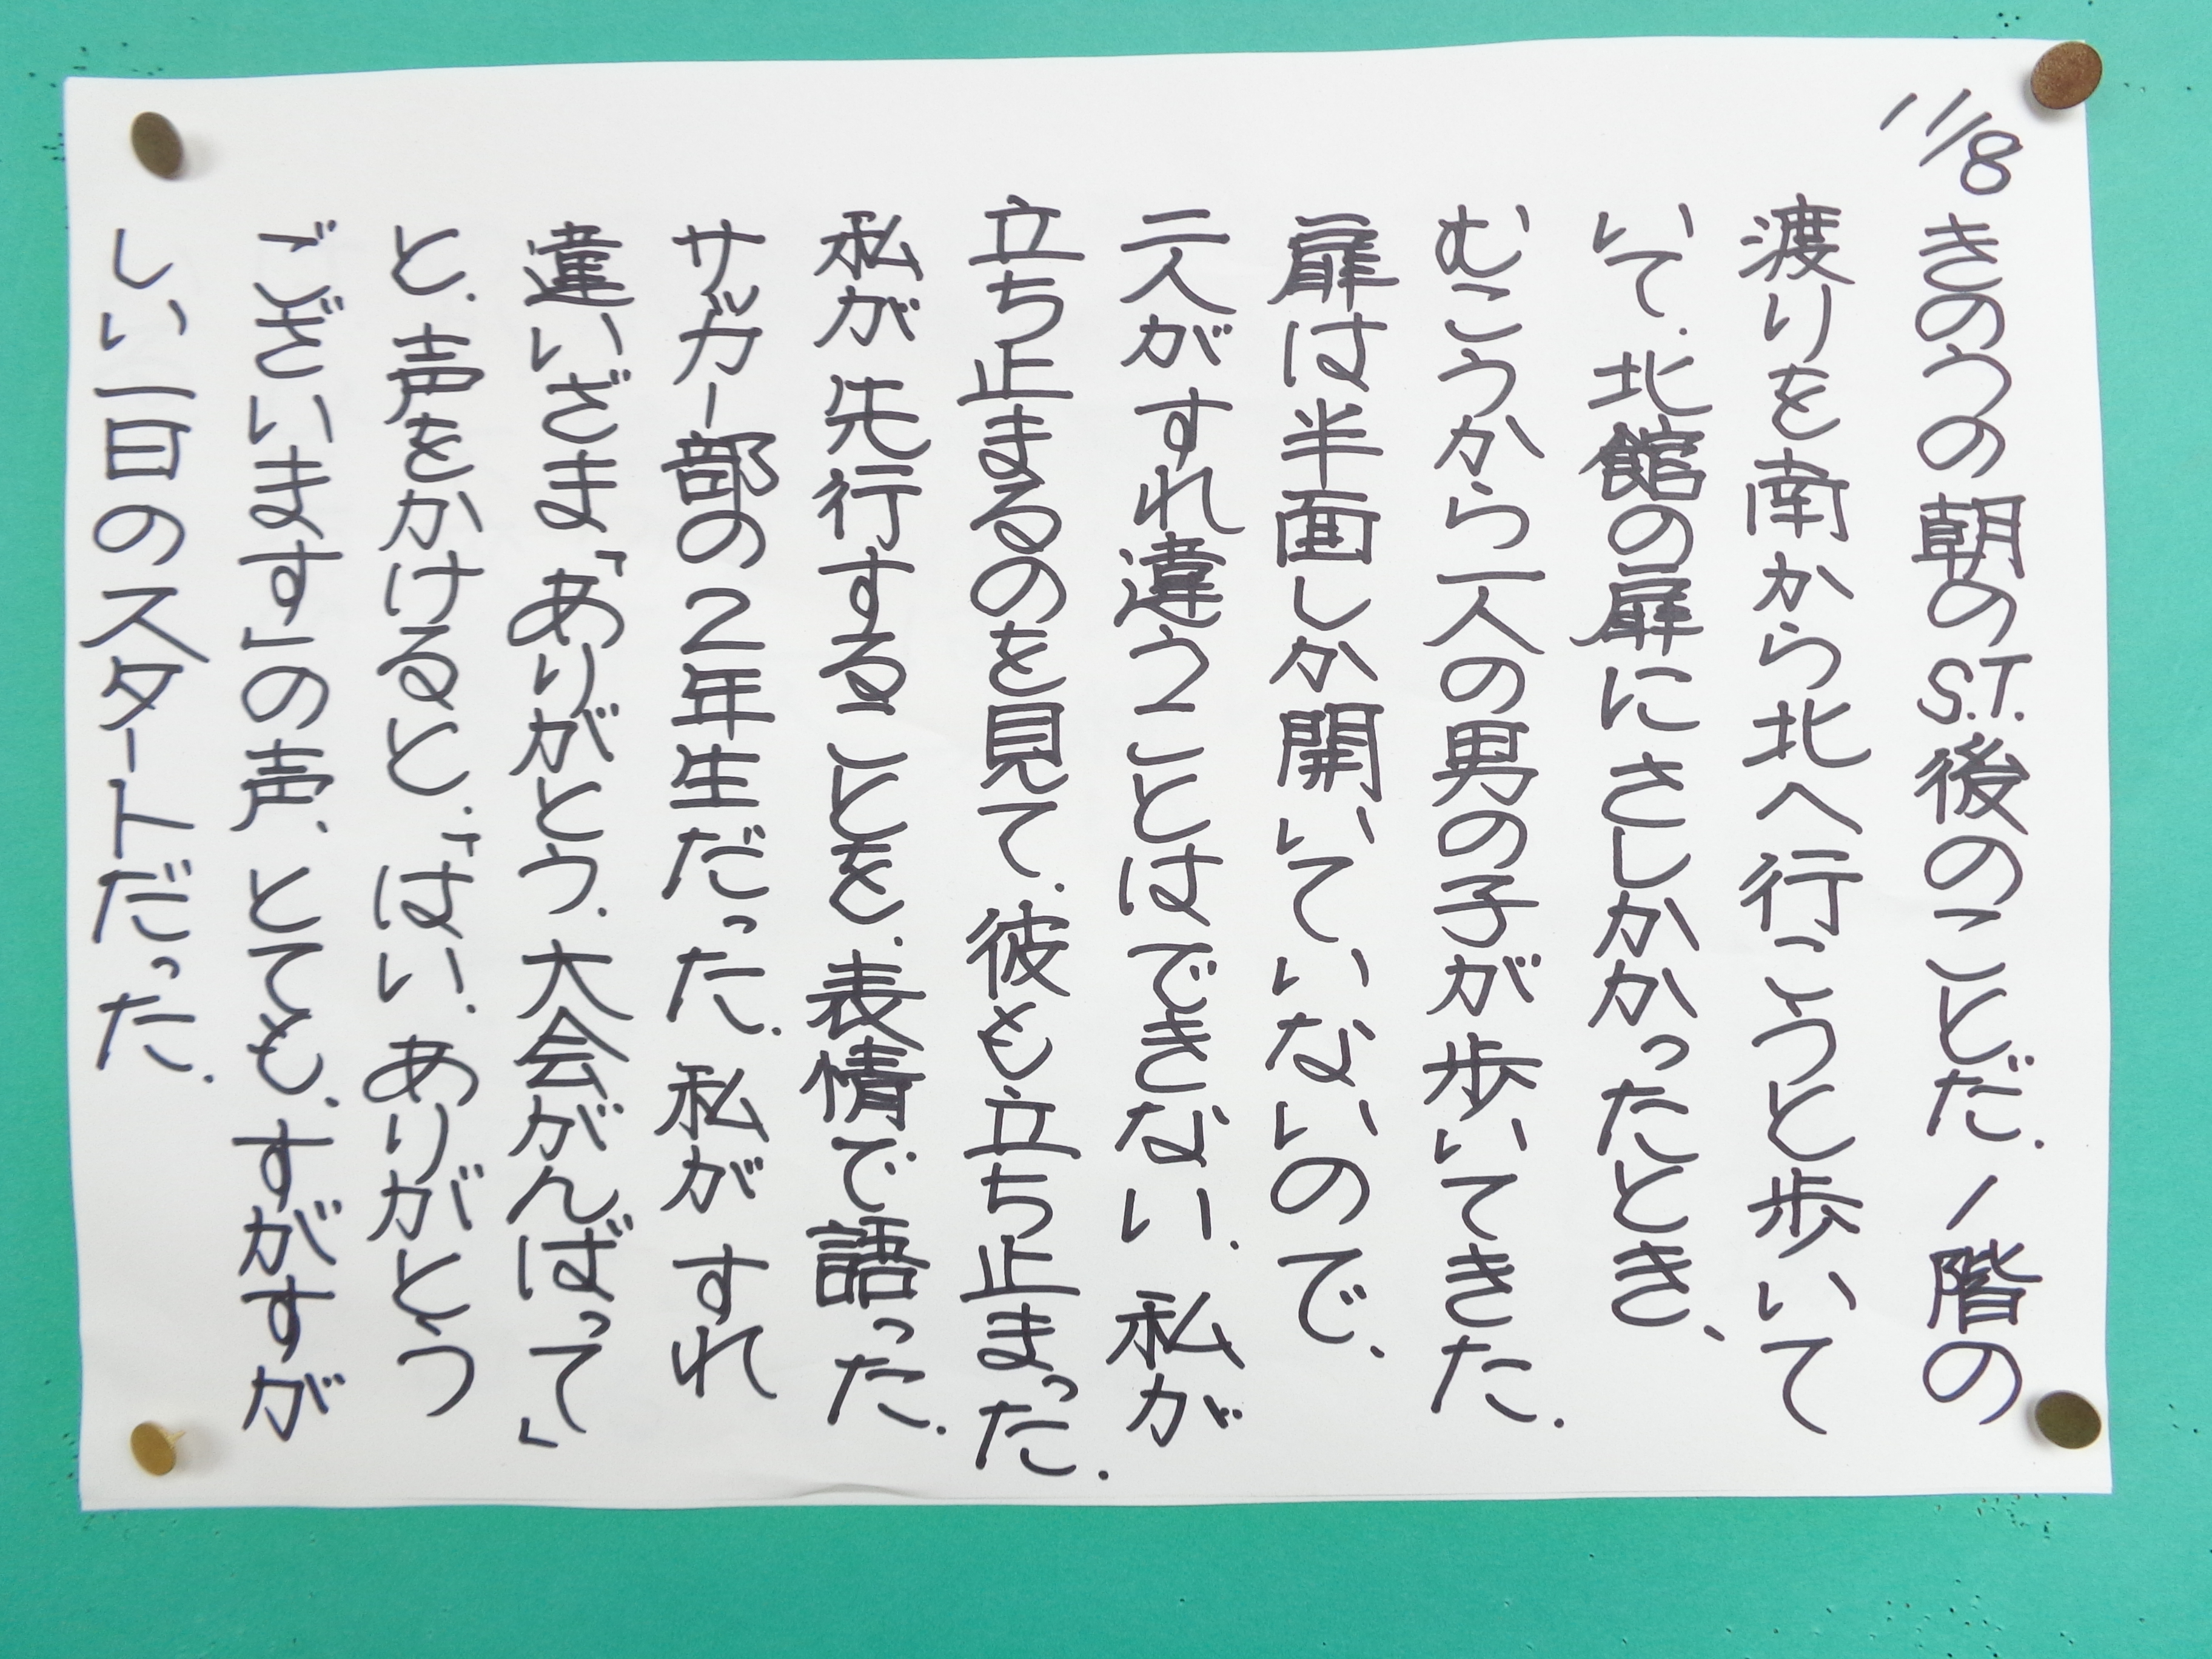 11/8
きのうの朝のS.T.後のことだ.1階の
渡りを南から北へ行こうと歩いて
いて.北館の扉にさしかかったとき、
むこうから一人の男の子が歩いてきた.
扉は半面しか開いていないので、
二人がすれ違うことはできない.私が
立ち止まるのを見て.彼も立ち止まった.
私が先行することを.表情で語った.
サッカー部の2年生だった.私がすれ
違いざま「ありがとう.大会がんばって」
と.声をかけると.「はい.ありがとう
ございます」の声.とても.すがすが
しい一日のスタートだった.